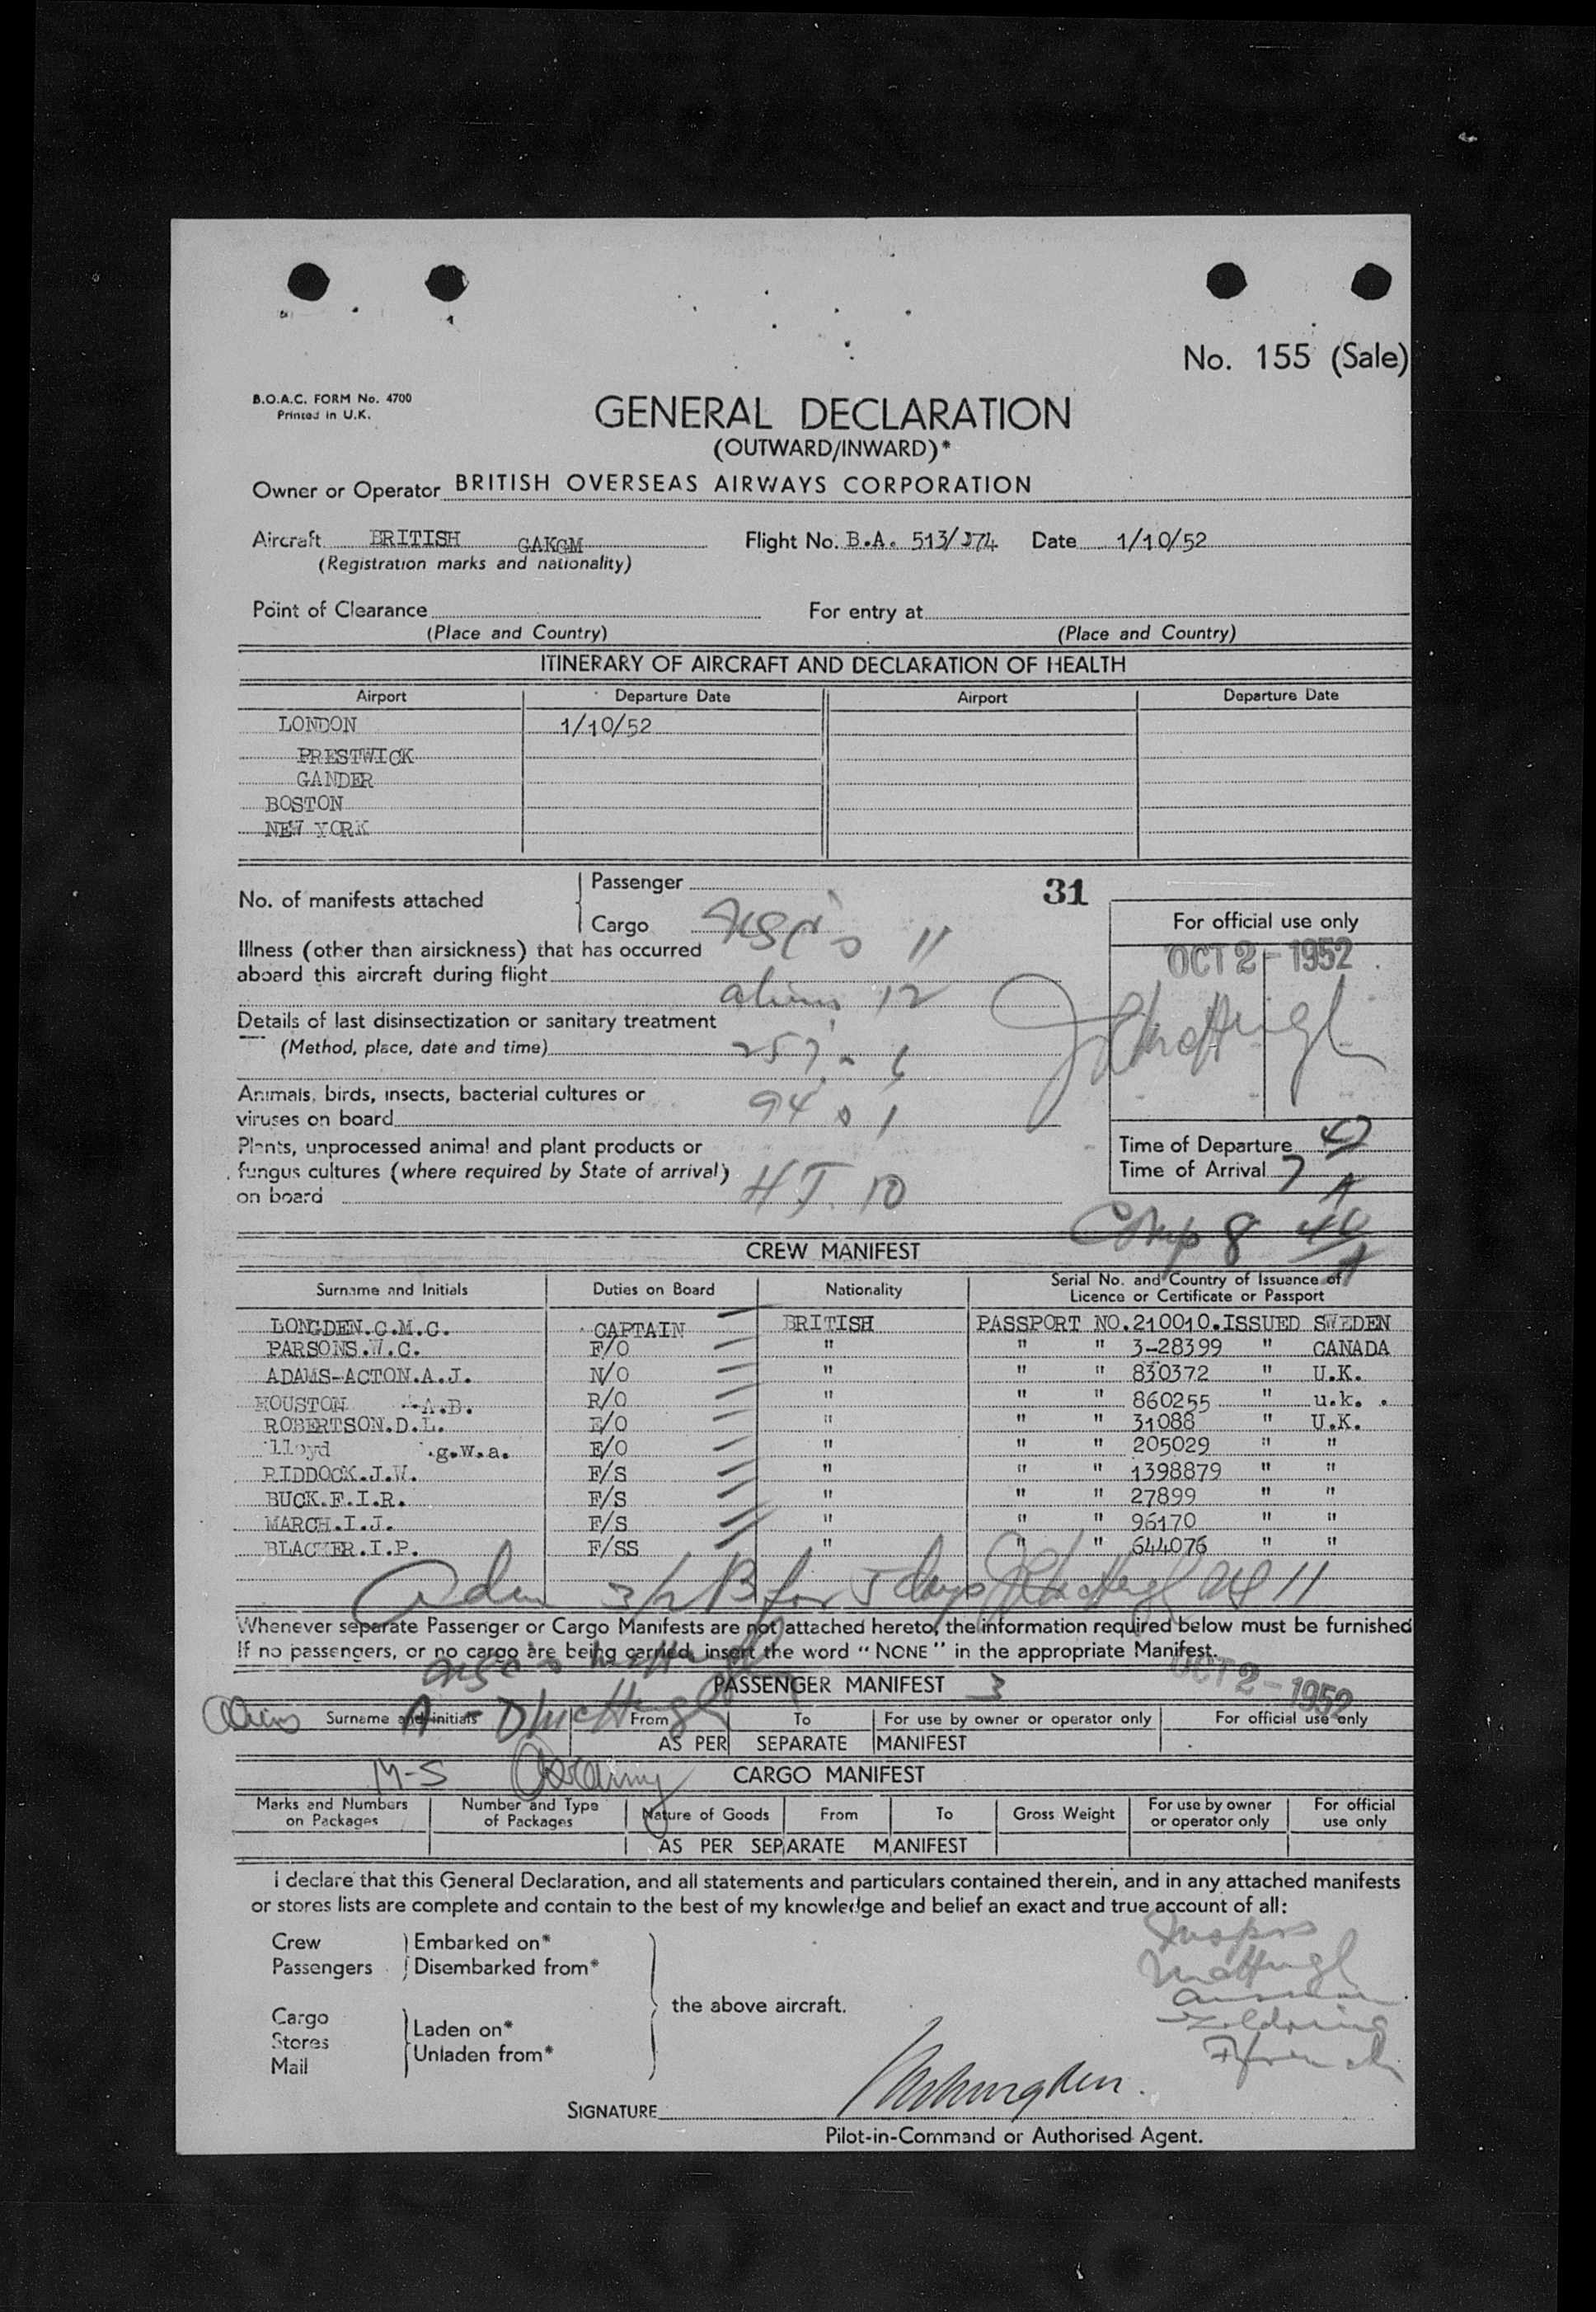 No. 155 (Sale)
B.O.A.C. FORM No. 4700
Printed in U.K.
GENERAL DECLARATION
(OUTWARD/INWARD)*
Owner or Operator BRITISH OVERSEAS AIRWAYS CORPORATION
Aircraft BRITISH GAKGM Flight No. B.A. 513/374 Date 1/10/52
(Registration marks and nationality)
Point of Clearance For entry at
(Place and Country) (Place and Country)
ITINERARY OF AIRCRAFT AND DECLARATION OF HEALTH
Airport Departure Date Airport Departure Date
LONDON 1/10/52
PRESTWICK
GANDER
BOSTON
NEW YORK
No. of manifests attached Passenger 31
Cargo
For official use only
Illness (other than airsickness) that has occurred 11
aboard this aircraft during flight
OCT 2 - 1952
aliens 12
Details of last disinsectization or sanitary treatment
(Method, place, date and time) 257
Animals, birds, insects, bacterial cultures or
viruses on board 94 1
Plants, unprocessed animal and plant products or
fungus cultures (where required by State of arrival)
on board HT. 10
Time of Departure
Time of Arrival 7 A
Comp 8
CREW MANIFEST
Surname and Initials Duties on Board Nationality Serial No. and Country of Issuance of Licence or Certificate or Passport
LONGDEN.C.M.C. CAPTAIN BRITISH PASSPORT NO.210010.ISSUED SWEDEN
PARSONS.W.C. F/O " " " 3-28399 " CANADA
ADAMS-ACTON.A.J. N/O " " " 830372 " U.K.
HOUSTON A.B. R/O " " " 860255 " u.k. .
ROBERTSON.D.L. E/O " " " 31088 " U.K.
Lloyd .g.w.a. E/O " " " 205029 " "
RIDDOCK.J.W. F/S " " " 1398879 " "
BUCK.F.I.R. F/S " " " 27899 " "
MARCH.I.J. F/S " " " 96170 " "
BLACKER.I.P. F/SS " " " 644076 " "
Adm 3/2 B for 5 days
Whenever separate Passenger or Cargo Manifests are not attached hereto, the information required below must be furnished
If no passengers, or no cargo are being carried, insert the word "NONE" in the appropriate Manifest.
OCT 2 - 1952
PASSENGER MANIFEST 3
Surname and initials From To For use by owner or operator only For official use only
AS PER SEPARATE MANIFEST
M-S
CARGO MANIFEST
Marks and Numbers on Packages Number and Type of Packages Nature of Goods From To Gross Weight For use by owner or operator only For official use only
AS PER SEPARATE MANIFEST
I declare that this General Declaration, and all statements and particulars contained therein, and in any attached manifests
or stores lists are complete and contain to the best of my knowledge and belief an exact and true account of all:
Crew Embarked on*
Passengers Disembarked from*
the above aircraft.
Cargo
Stores Laden on*
Mail Unladen from*
SIGNATURE
Pilot-in-Command or Authorised Agent.